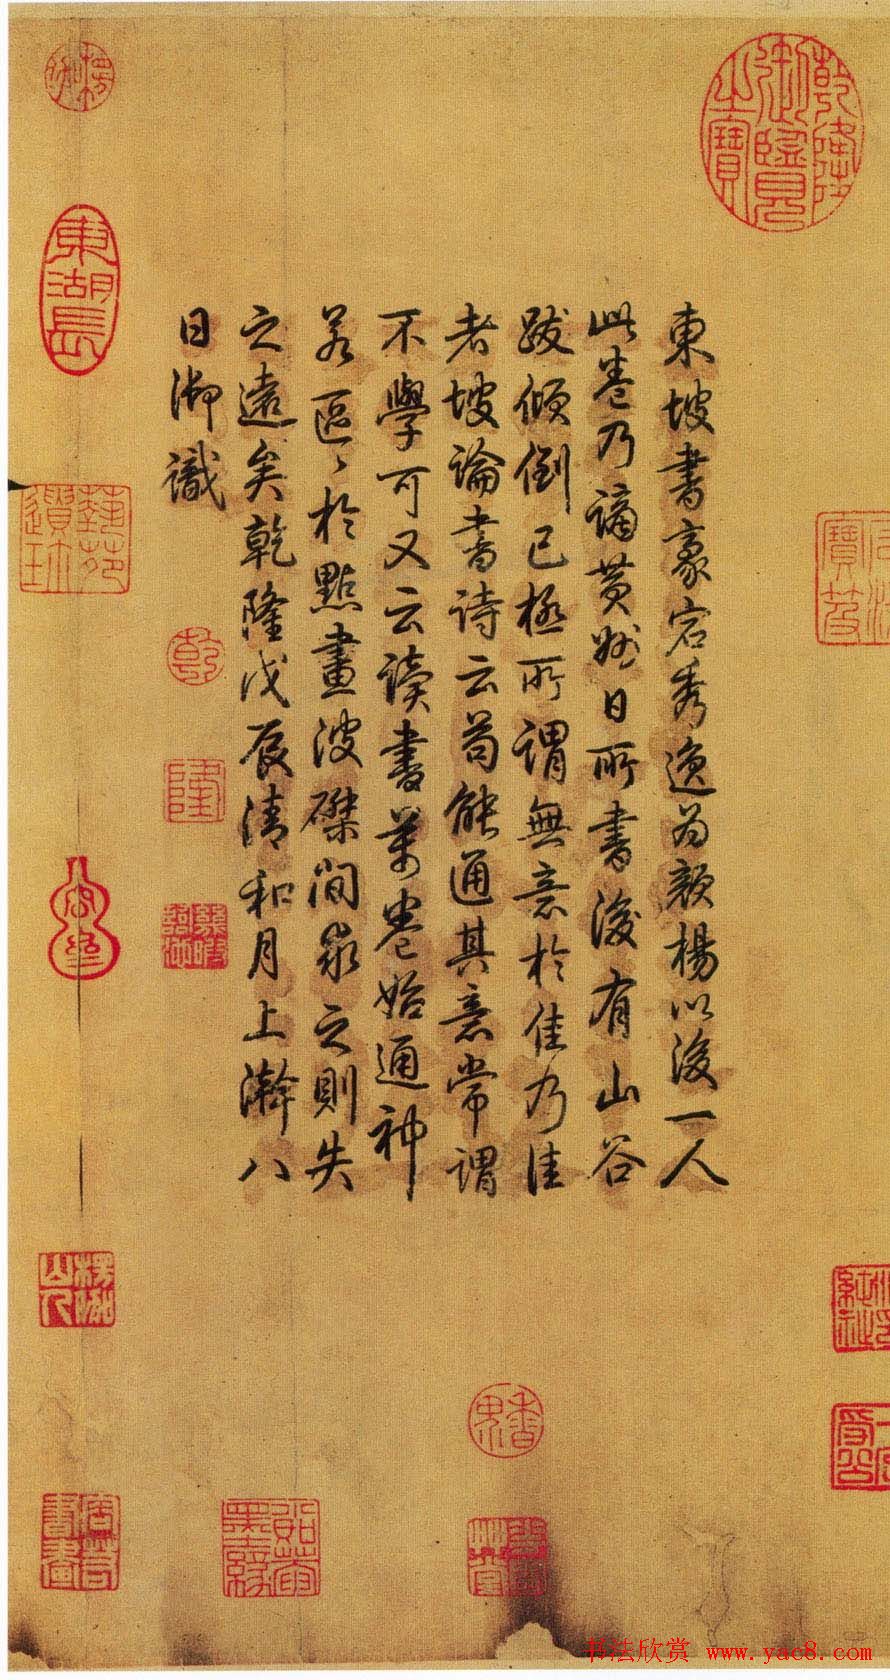 東坡書豪宕秀逸為顏楊以後一人
此卷乃謫黄州日所書後有山谷
跋傾倒已極所謂無意於佳乃佳
者坡論書詩云苟能通其意常謂
不學可又云讀書萬卷始通神
若區〻於點畫波磔間求之則失
之遠矣乾隆戊辰清和月上澣八
日御識
乾隆御覽之寶
東湖長
乾
隆
書法欣赏 www.yac8.com